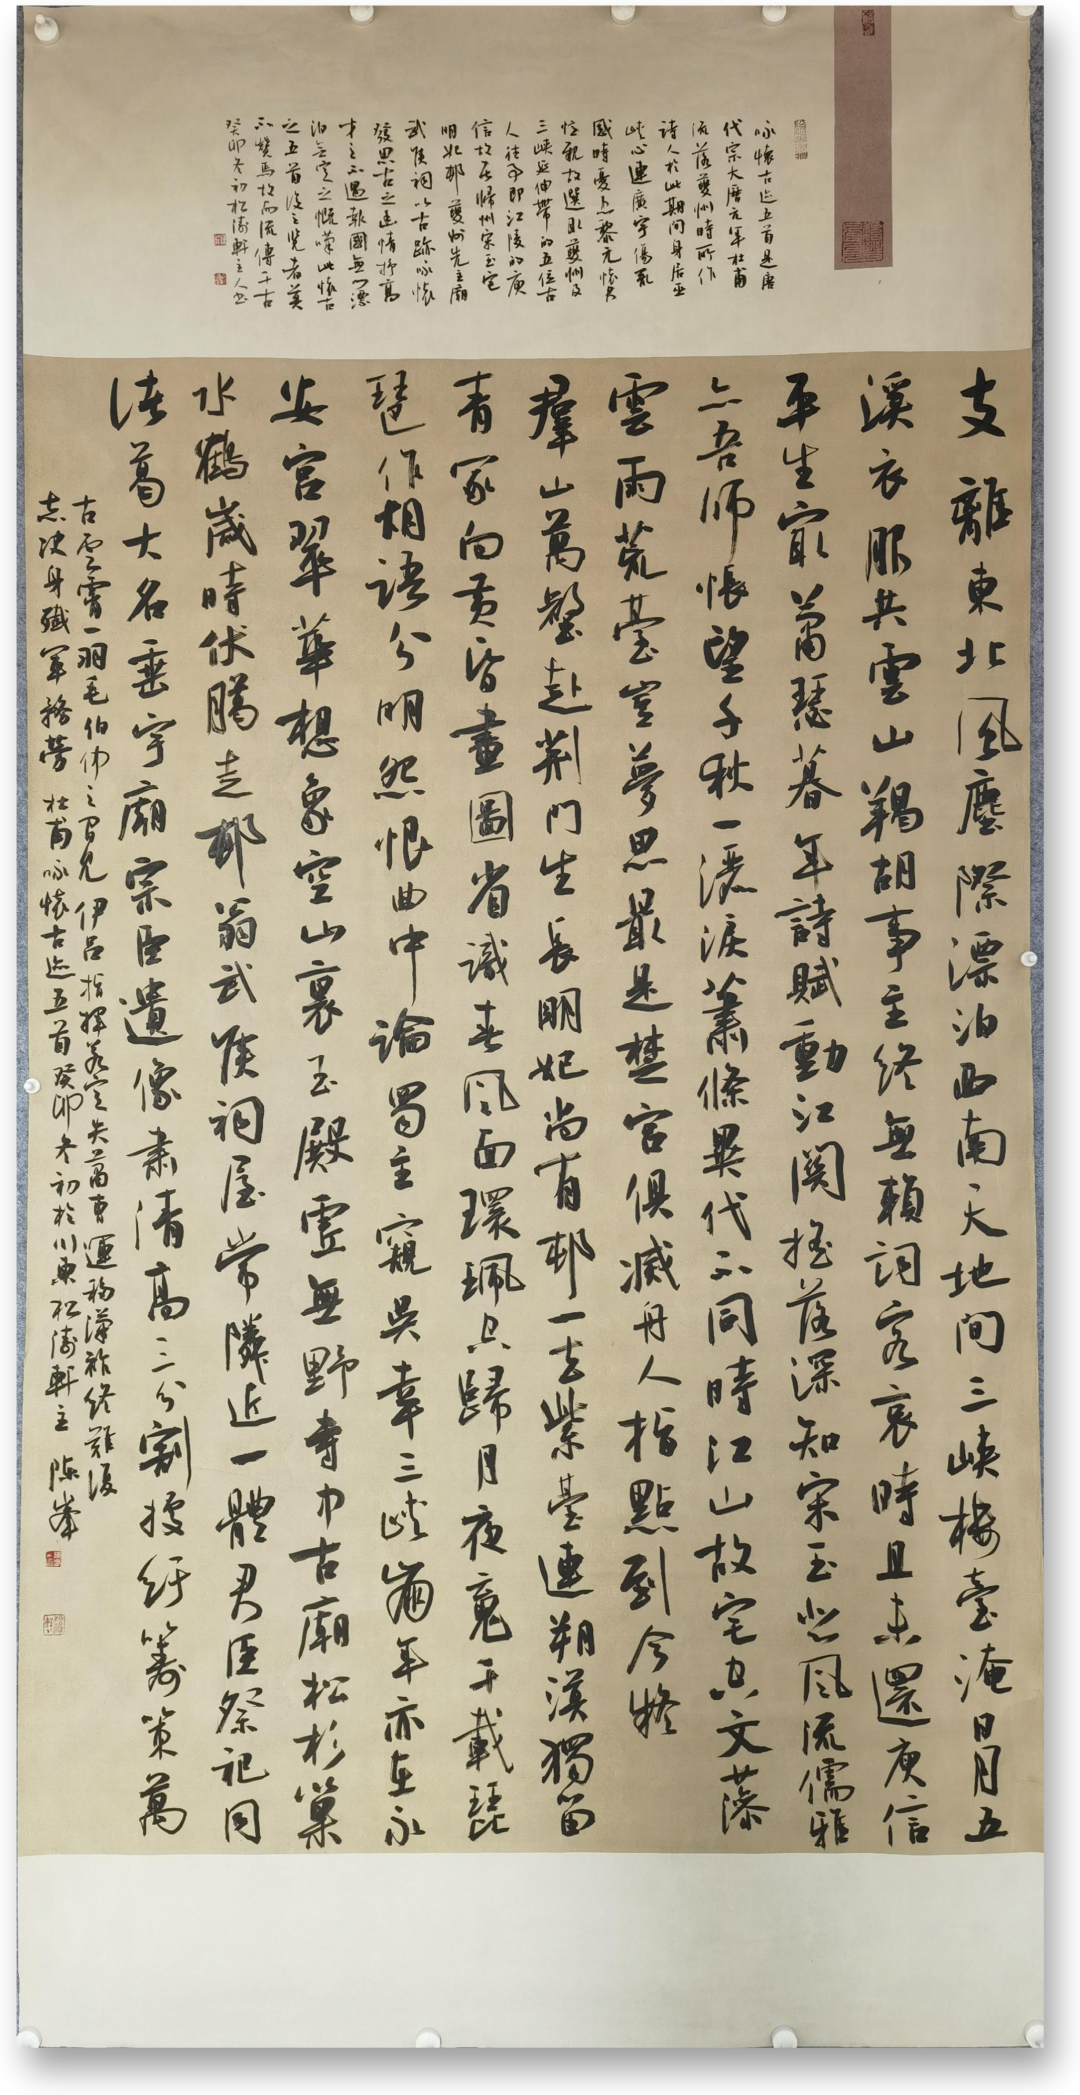 咏懷古迹五首是唐
代宗大曆元年杜甫
流落夔州時所作
詩人於此期間身居巫
峽心連廣宇傷亂
國時憂患黎元懷
三峽延伸帶的五位古
人徒而即江陵的庾
信故居歸州宋玉宅
明妃邨夔州先主廟
武侯祠以古跡咏懷
發思古之幽情抒高
才之不遇報國無門漂
泊無定之慨嘆此懷古
之五首後之覽者莫
不贊焉故而流傳千古
癸卯冬初松濤軒主人书
支離東北風塵際漂泊西南天地間三峽樓臺淹日月五
溪衣服共雲山羯胡事主終無賴詞客哀時且未還庾信
平生最蕭瑟暮年詩賦動江關摇落深知宋玉悲風流儒雅
亦吾師悵望千秋一灑淚蕭條異代不同時江山故宅空文藻
雲雨荒臺豈夢思最是楚宮俱滅舟人指點到今疑
羣山萬壑赴荆門生長明妃尚有邨一去紫臺連朔漠獨留
青冢向黃昏畫圖省識春風面環珮空歸月夜魂千載琵
琶作胡語分明怨恨曲中論蜀主窺吳幸三峽崩年亦在永
安宮翠華想象空山裏玉殿虛無野寺中古廟松杉巢
水鶴歲時伏臘走邨翁武侯祠屋常隣近一體君臣祭祀同
諸葛大名垂宇廟宗臣遺像肅清高三分割據紆籌策萬
古雲霄一羽毛伯仲之間見伊呂指揮若定失蕭曹運移漢祚終難復
志决身殲軍務勞 杜甫咏懷古迹五首癸卯冬初於川東松濤軒主 陳峯